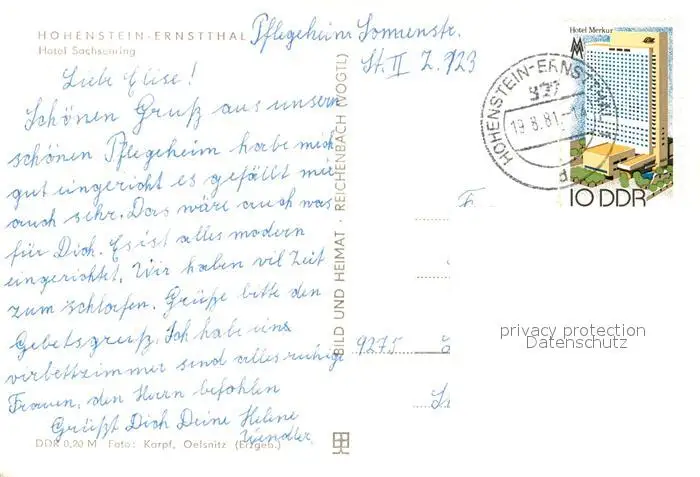 HOHENSTEIN-ERNSTTHAL
Hotel Sachsenring
Pflegeheim Sonnenstr.
St. II Z. 123
Liebe Elise!
Schönen Gruß aus unsern
schönen Pflegeheim habe mich
gut eingericht es gefällt mir
auch sehr. Das wäre auch was
für Dich. Es ist alles modern
eingerichtet. Wir haben vil Zeit
zum schlafen. Grüße bitte den
Gebetsgruß. Ich habe ein
vierbettzimmer sind alles ruhige
Frauen, den Herrn befohlen
Grüßt Dich Deine Helene
Wendler
DDR 0,20 M Foto: Karpf, Oelsnitz (Erzgeb.)
BILD UND HEIMAT · REICHENBACH (VOGTL)
Hotel Merkur
10 DDR
HOHENSTEIN-ERNSTTHAL
927
19.8.81
F
9275
privacy protection
Datenschutz